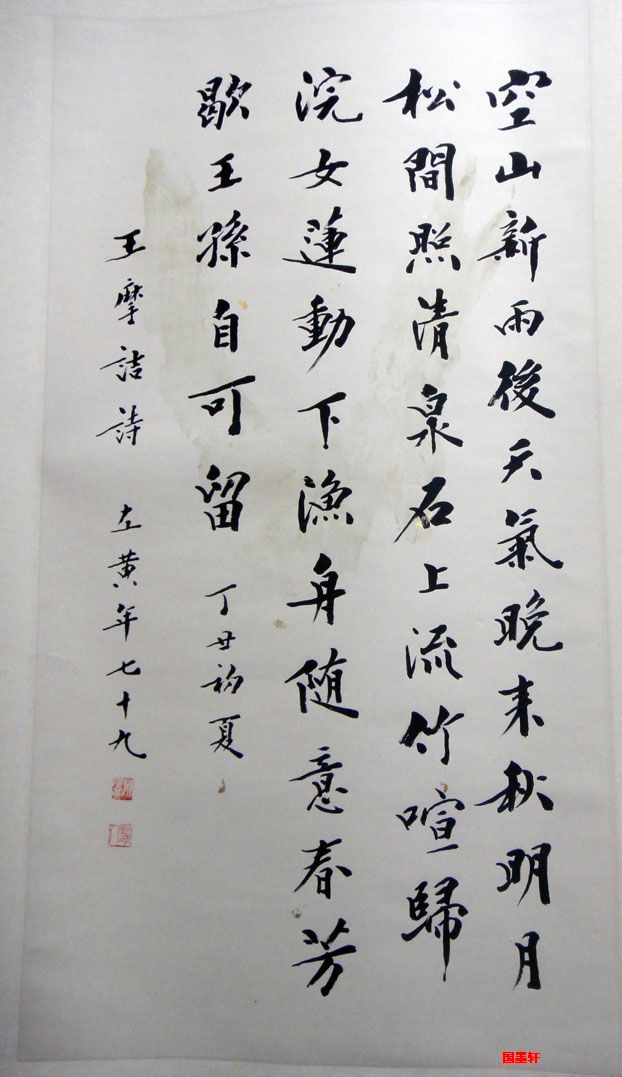 空山新雨後天氣晚来秋明月
松間照清泉石上流竹喧歸
浣女蓮動下漁舟随意春芳
歇王孫自可留 丁丑初夏
王摩詰詩 左黄年七十九
国墨轩